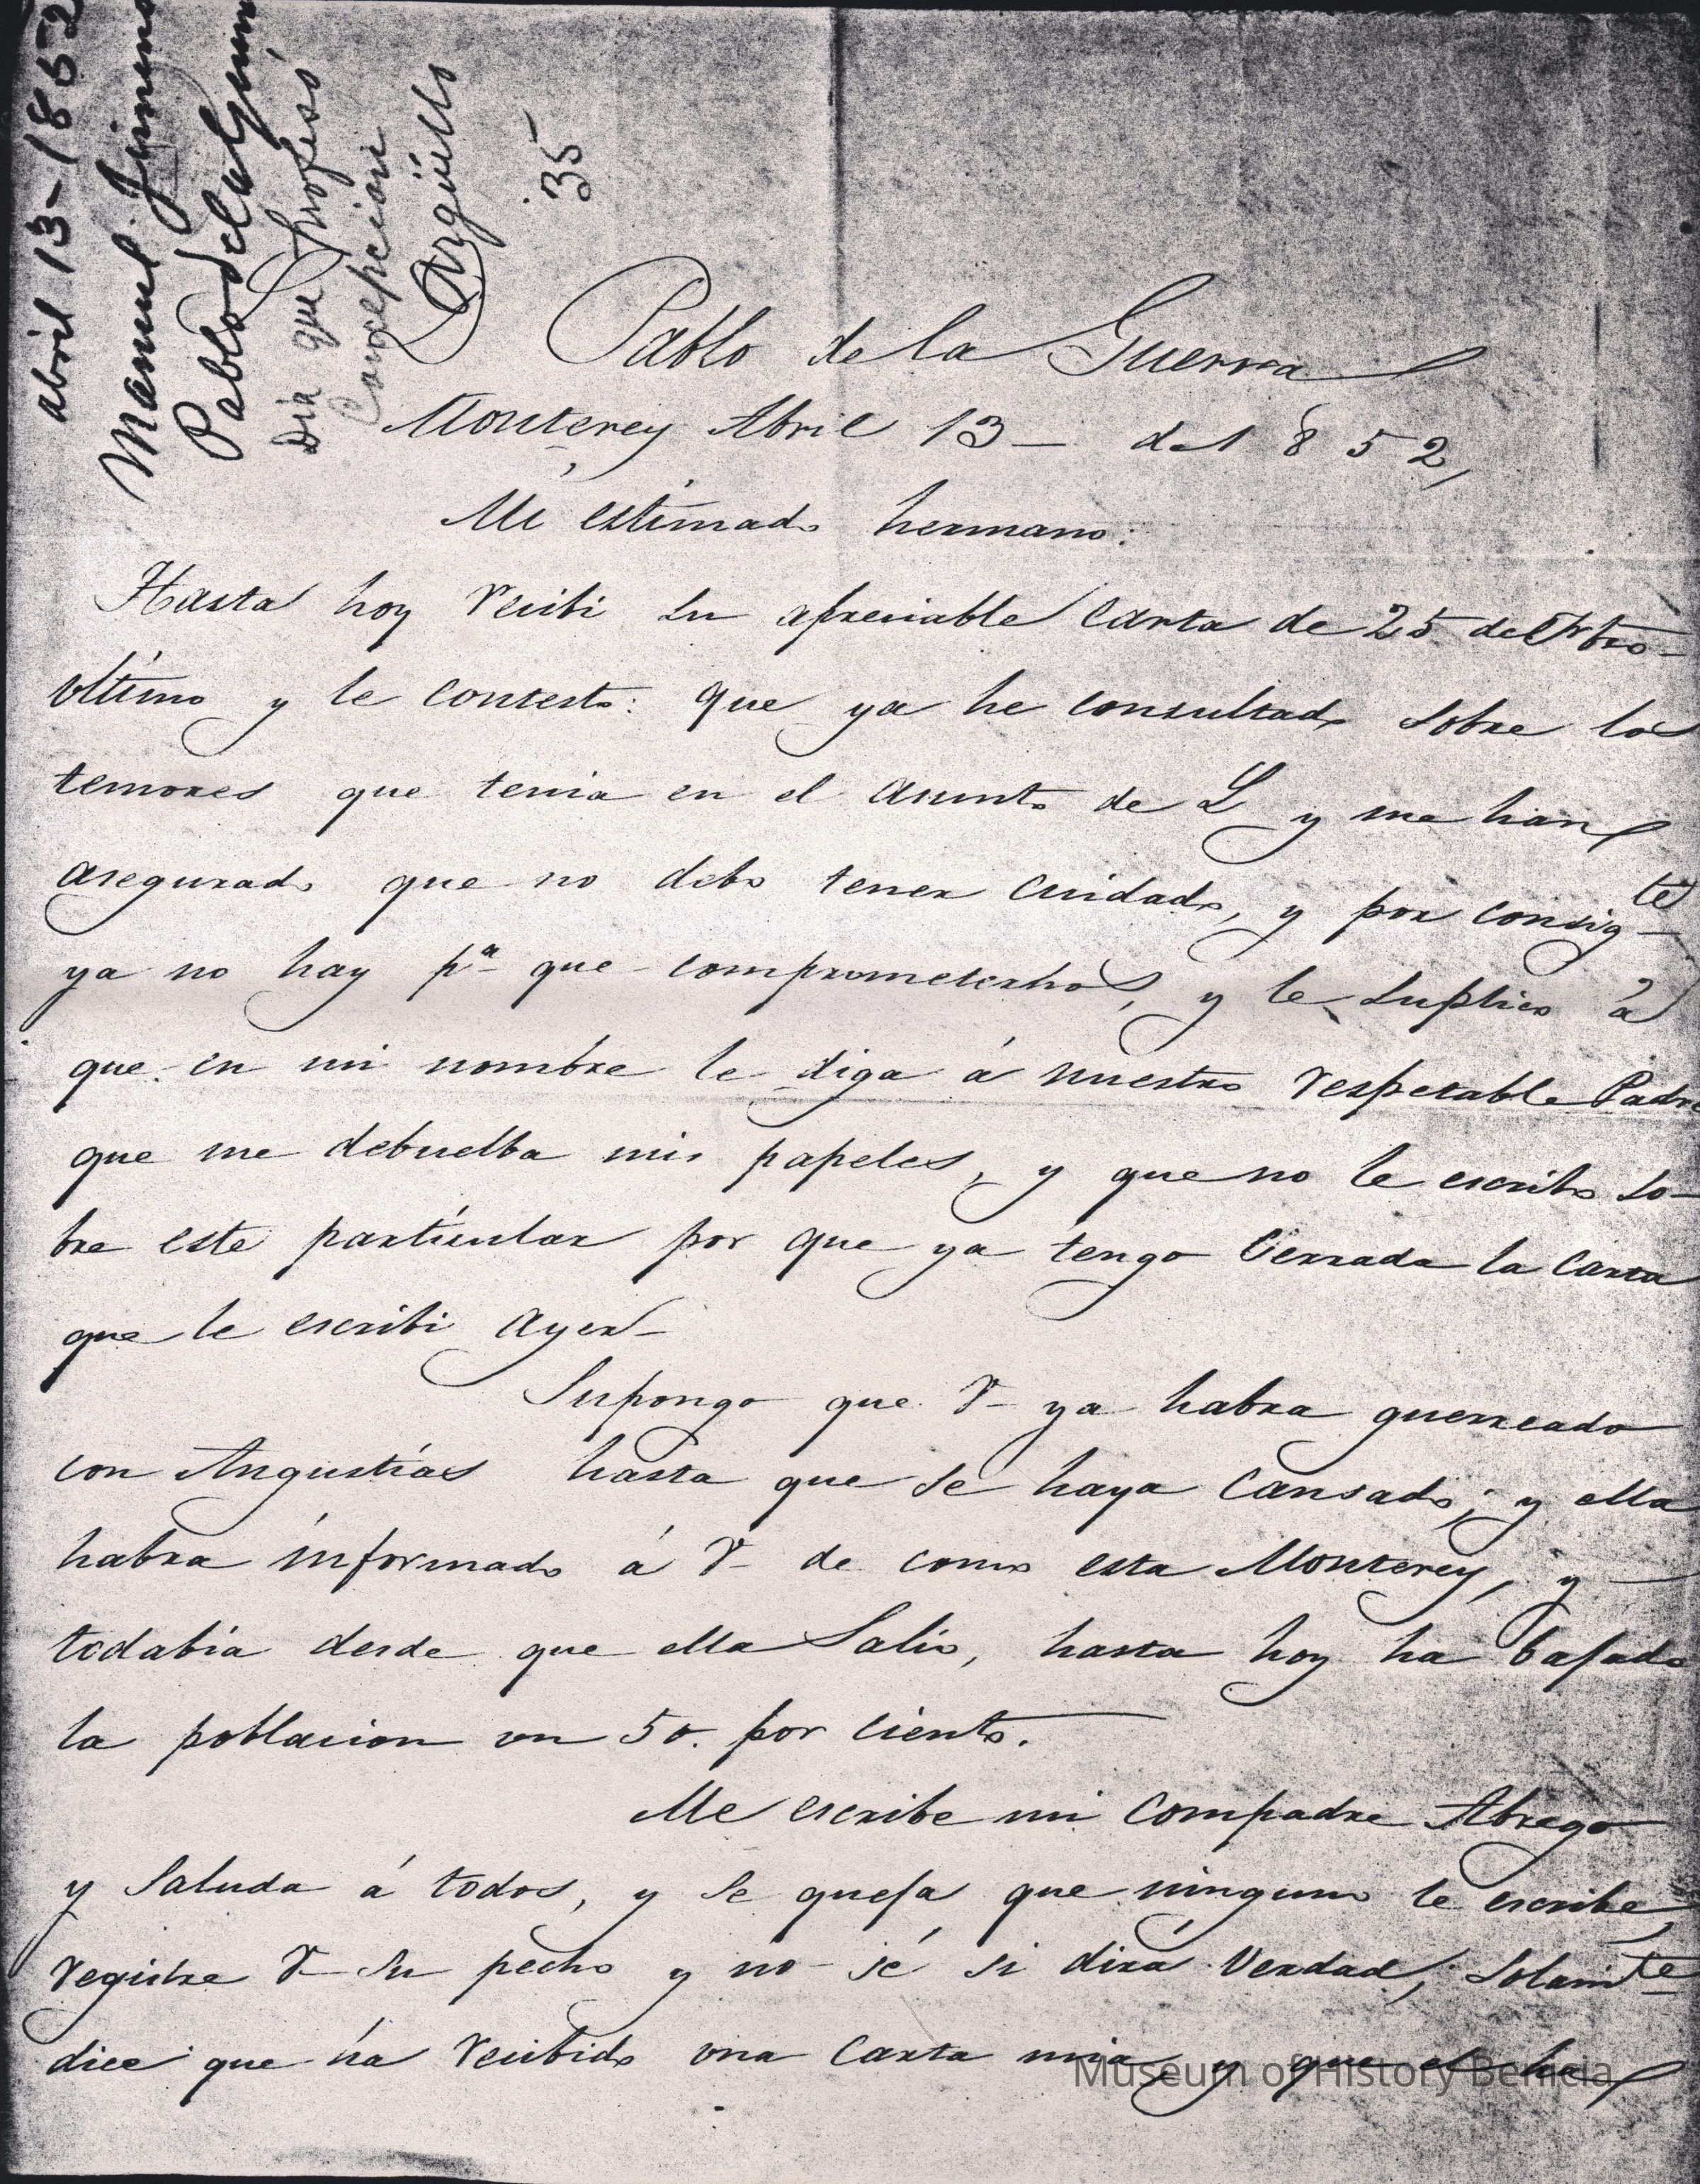 abril 13-1852
Manuel Jimeno
Pablo de la Guerra
Dia que profesó
Concepcion
Argüello
35
Pablo de la Guerra
Monterey Abril 13 - de 1852,
Mi estimado hermano:
Hasta hoy recibi su apreciable carta de 25 del
ultimo y le contesto: que ya he consultado sobre los
temores que tenia en el asunto de L y me han
asegurado que no debo tener cuidado, y por consigte
ya no hay pa que comprometerlos, y le suplico á
que en mi nombre le diga á nuestro respetable Padre
que me debuelba mis papeles, y que no le escribo so-
bre este particular por que ya tengo cerrada la carta
que le escribi ayer-
Supongo que V- ya habra guerreado
con Angustias hasta que se haya cansado; y ella
habra informado á V- de como esta Monterey, y
todabia desde que ella salio, hasta hoy ha bajado
la poblacion un 50. por ciento.
Me escribe mi compadre Abrego
y saluda á todos, y se queja que ninguno le escribe,
registre V- su pecho y no sé si dirá verdad; solamte
dice que há recibido una carta mia y que el ha
Museum of History Benicia